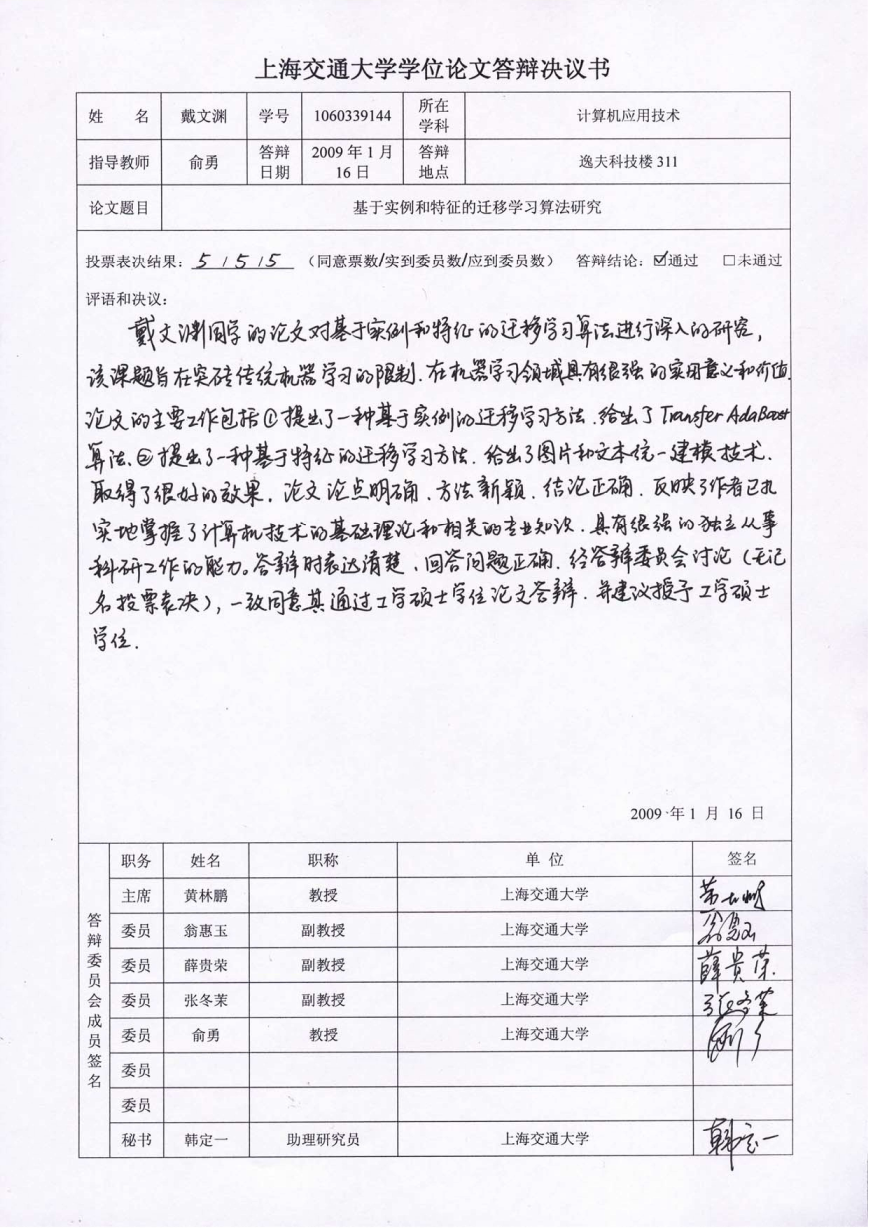 上海交通大学学位论文答辩决议书
姓 名 戴文渊 学号 1060339144 所在学科 计算机应用技术
指导教师 俞勇 答辩日期 2009 年 1 月 16 日 答辩地点 逸夫科技楼 311
论文题目 基于实例和特征的迁移学习算法研究
投票表决结果：5 / 5 / 5 （同意票数/实到委员数/应到委员数） 答辩结论：☑通过 □未通过
评语和决议：
戴文渊同学的论文对基于实例和特征的迁移学习算法进行深入的研究，
该课题旨在突破传统机器学习的限制．在机器学习领域具有很强的实用意义和价值．
论文的主要工作包括①提出了一种基于实例的迁移学习方法．给出了 Transfer AdaBoost
算法．②提出了一种基于特征的迁移学习方法．给出了图片和文本统一建模技术．
取得了很好的效果．论文论点明确．方法新颖．结论正确．反映了作者已扎
实地掌握了计算机技术的基础理论和相关的专业知识．具有很强的独立从事
科研工作的能力。答辩时表达清楚、回答问题正确．经答辩委员会讨论（无记
名投票表决），一致同意其通过工学硕士学位论文答辩．并建议授予工学硕士
学位．
2009 年 1 月 16 日
答辩委员会成员签名
职务 姓名 职称 单 位 签名
主席 黄林鹏 教授 上海交通大学
委员 翁惠玉 副教授 上海交通大学 翁惠玉
委员 薛贵荣 副教授 上海交通大学 薛贵荣
委员 张冬茉 副教授 上海交通大学 张冬茉
委员 俞勇 教授 上海交通大学
委员
委员
秘书 韩定一 助理研究员 上海交通大学 韩定一